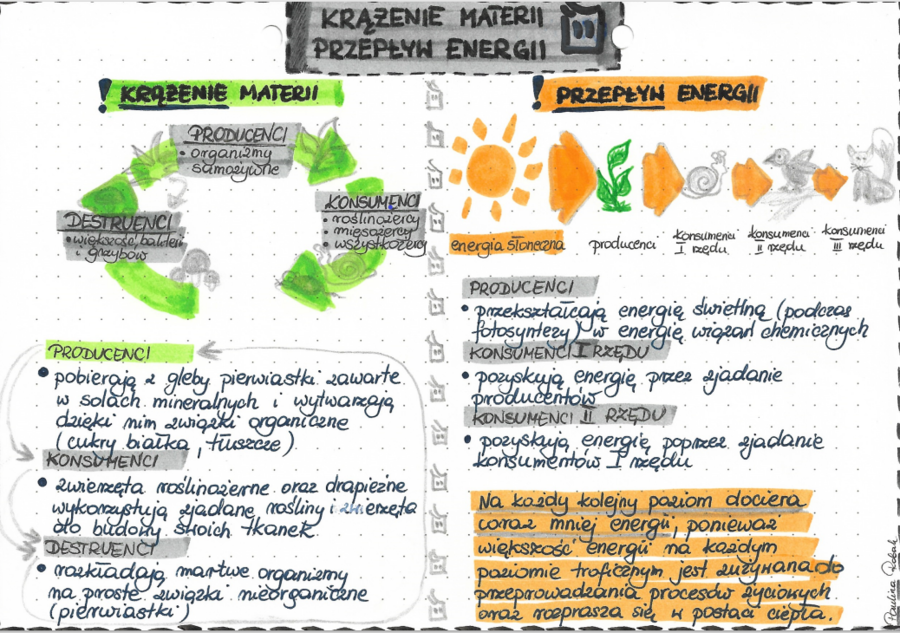 KRĄŻENIE MATERII
PRZEPŁYW ENERGII
! KRĄŻENIE MATERII
PRODUCENCI
• organizmy
samożywne
DESTRUENCI
• większość bakterii
i grzybów
KONSUMENCI
• roślinożercy
mięsożercy
• wszystkożercy
PRODUCENCI
• pobierają z gleby pierwiastki zawarte
w solach mineralnych i wytwarzają
dzięki nim związki organiczne
(cukry białka, tłuszcze)
KONSUMENCI
• zwierzęta roślinożerne oraz drapieżne
wykorzystują zjadane rośliny i zwierzęta
do budowy swoich tkanek
DESTRUENCI
• rozkładają martwe organizmy
na proste związki nieorganiczne
(pierwiastki)
! PRZEPŁYW ENERGII
energia słoneczna
producenci
konsumenci
I rzędu
konsumenci
II rzędu
konsumenci
III rzędu
PRODUCENCI
• przekształcają energię świetlną (podczas
fotosyntezy) w energię wiązań chemicznych
KONSUMENCI I RZĘDU
• pozyskują energię przez zjadanie
producentów
KONSUMENCI II RZĘDU
• pozyskują energię poprzez zjadanie
konsumentów I rzędu
Na każdy kolejny poziom dociera
coraz mniej energii, ponieważ
większość energii na każdym
poziomie troficznym jest zużywana do
przeprowadzania procesów życiowych
oraz rozprasza się w postaci ciepła.
Paulina